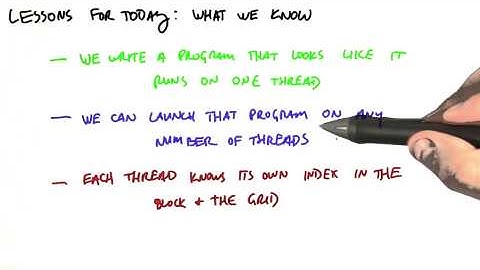 LESSONS FOR TODAY: WHAT WE KNOW
— WE WRITE A PROGRAM THAT LOOKS LIKE IT
RUNS ON ONE THREAD
— WE CAN LAUNCH THAT PROGRAM ON ANY
NUMBER OF THREADS
— EACH THREAD KNOWS ITS OWN INDEX IN THE
BLOCK & THE GRID